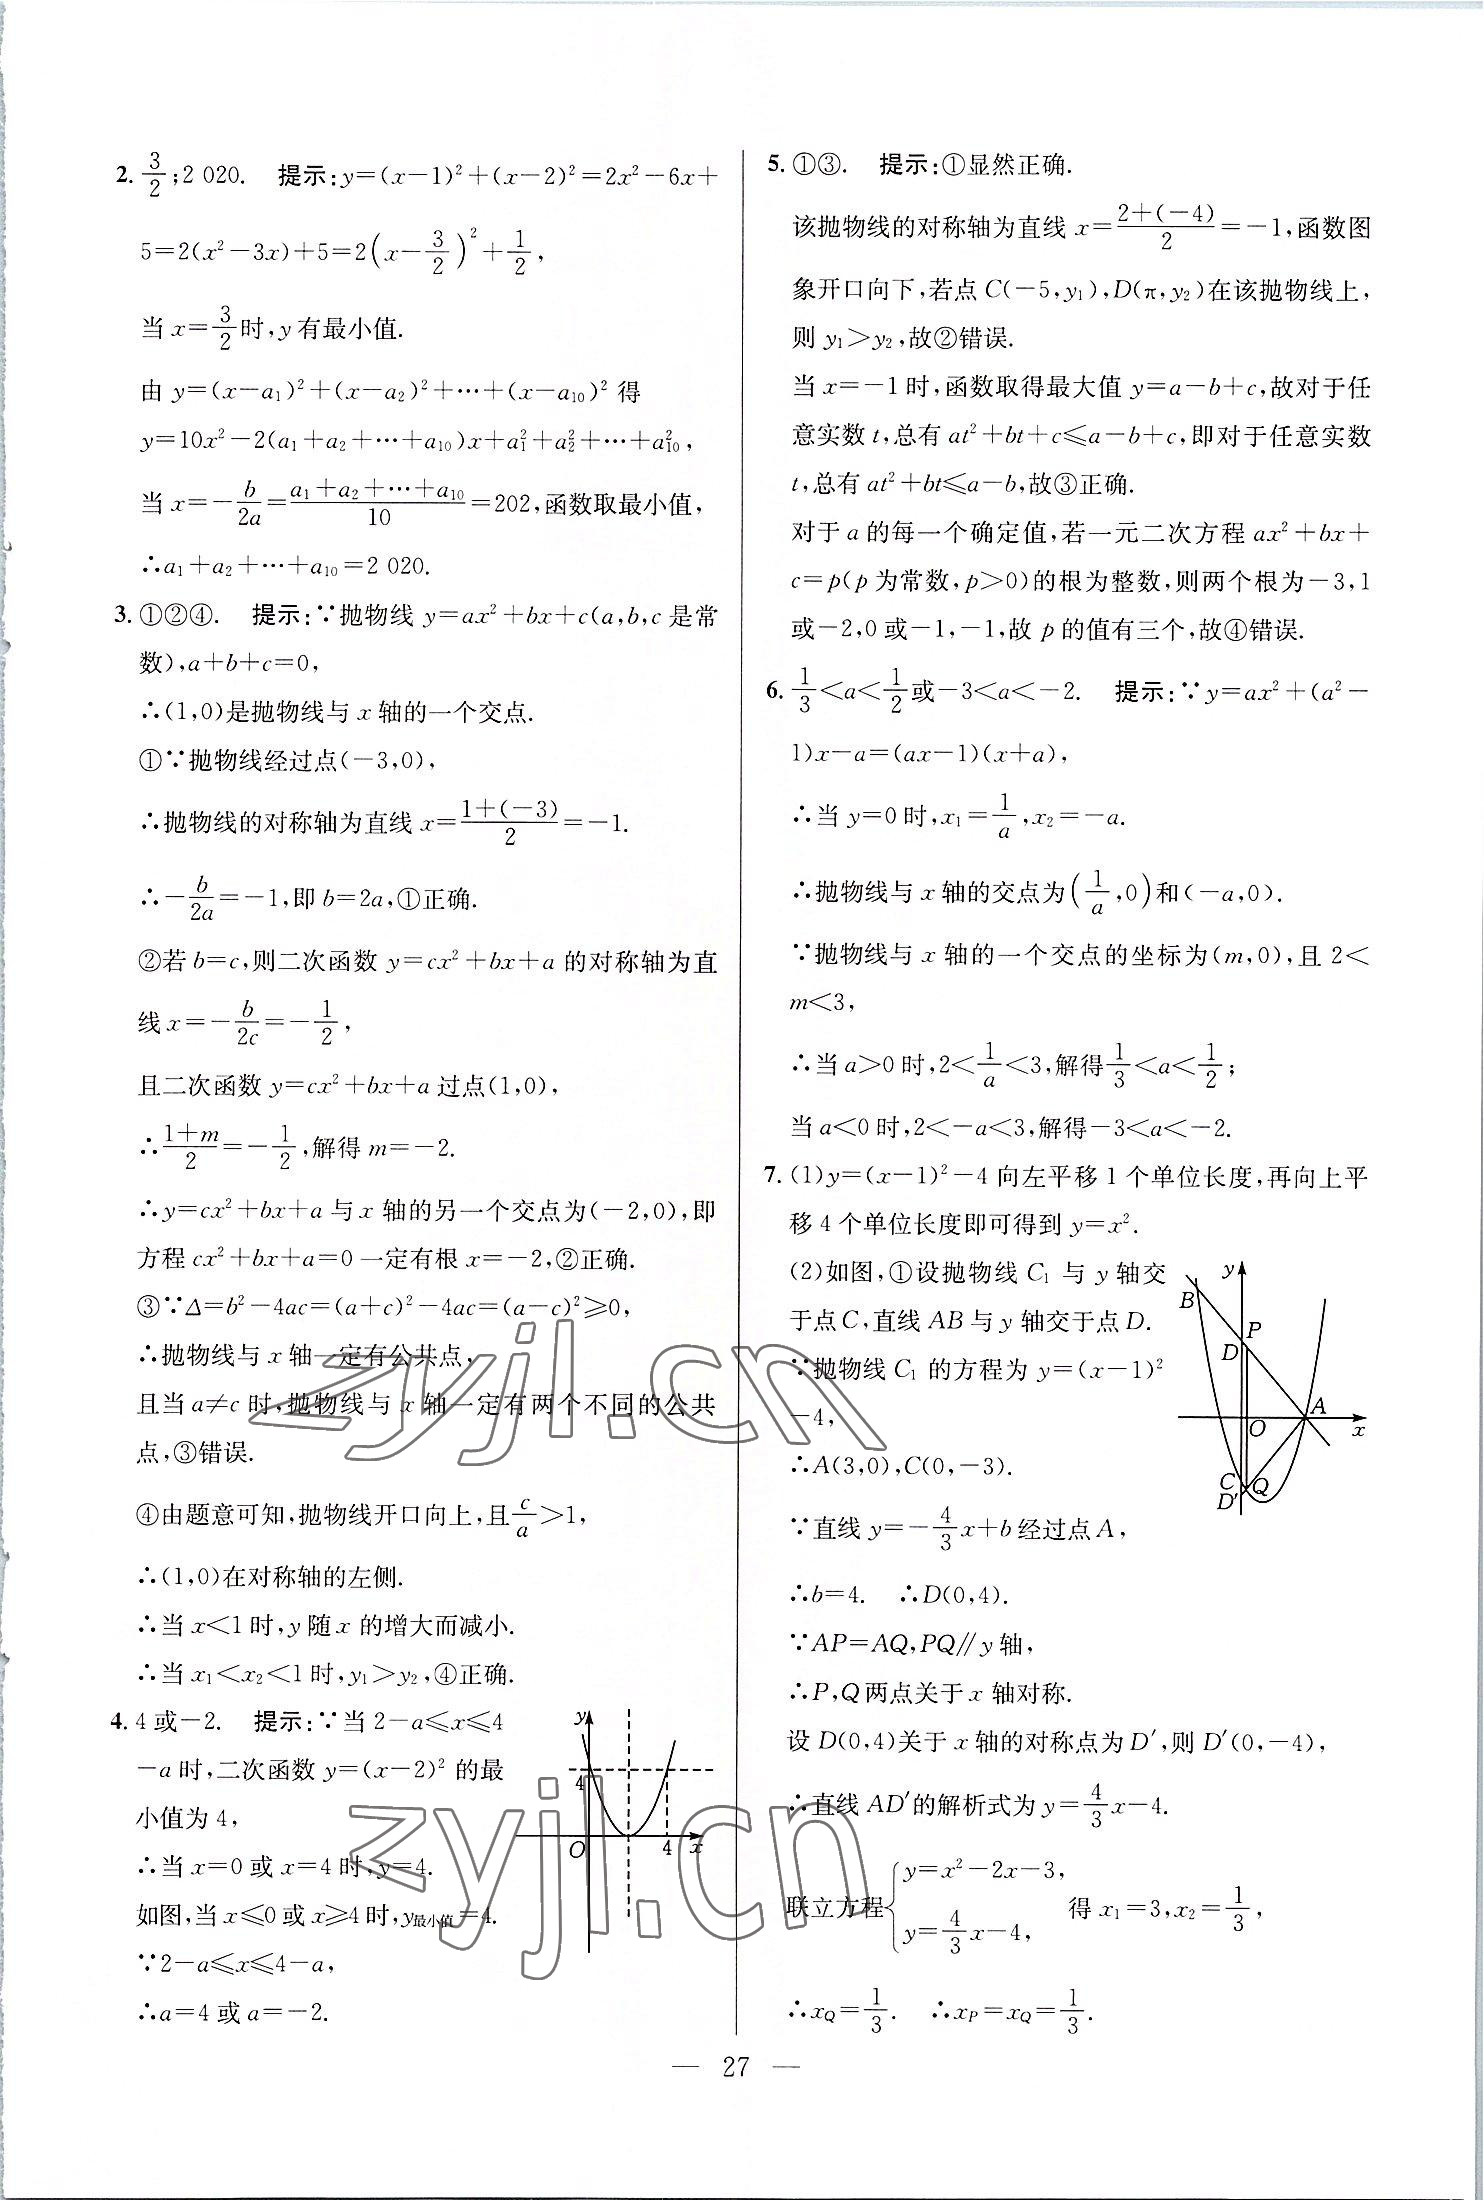 2. 3/2;2 020.　提示:y=(x-1)²+(x-2)²=2x²-6x+
5=2(x²-3x)+5=2(x-3/2)²+1/2,
当 x=3/2时,y 有最小值.
由 y=(x-a₁)²+(x-a₂)²+⋯+(x-a₁₀)² 得
y=10x²-2(a₁+a₂+⋯+a₁₀)x+a₁²+a₂²+⋯+a₁₀²,
当 x=-b/2a=(a₁+a₂+⋯+a₁₀)/10=202,函数取最小值,
∴a₁+a₂+⋯+a₁₀=2 020.
3. ①②④.　提示:∵抛物线 y=ax²+bx+c(a,b,c 是常
数),a+b+c=0,
∴(1,0)是抛物线与 x 轴的一个交点.
①∵抛物线经过点(-3,0),
∴抛物线的对称轴为直线 x=(1+(-3))/2=-1.
∴-b/2a=-1,即 b=2a,①正确.
②若 b=c,则二次函数 y=cx²+bx+a 的对称轴为直
线 x=-b/2c=-1/2,
且二次函数 y=cx²+bx+a 过点(1,0),
∴(1+m)/2=-1/2,解得 m=-2.
∴y=cx²+bx+a 与 x 轴的另一个交点为(-2,0),即
方程 cx²+bx+a=0 一定有根 x=-2,②正确.
③∵Δ=b²-4ac=(a+c)²-4ac=(a-c)²≥0,
∴抛物线与 x 轴一定有公共点,
且当 a≠c 时,抛物线与 x 轴一定有两个不同的公共
点,③错误.
④由题意可知,抛物线开口向上,且c/a>1,
∴(1,0)在对称轴的左侧.
∴当 x<1 时,y 随 x 的增大而减小.
∴当 x₁<x₂<1 时,y₁>y₂,④正确.
4. 4 或-2.　提示:∵当 2-a≤x≤4
-a 时,二次函数 y=(x-2)² 的最
小值为 4,
∴当 x=0 或 x=4 时,y=4.
如图,当 x≤0 或 x≥4 时,y最小值=4.
∵2-a≤x≤4-a,
∴a=4 或 a=-2.
y
4
O
4
x
5. ①③.　提示:①显然正确.
该抛物线的对称轴为直线 x=(2+(-4))/2=-1,函数图
象开口向下,若点 C(-5,y₁),D(π,y₂)在该抛物线上,
则 y₁>y₂,故②错误.
当 x=-1 时,函数取得最大值 y=a-b+c,故对于任
意实数 t,总有 at²+bt+c≤a-b+c,即对于任意实数
t,总有 at²+bt≤a-b,故③正确.
对于 a 的每一个确定值,若一元二次方程 ax²+bx+
c=p(p 为常数,p>0)的根为整数,则两个根为-3,1
或-2,0 或-1,-1,故 p 的值有三个,故④错误.
6. 1/3<a<1/2或-3<a<-2.　提示:∵y=ax²+(a²-
1)x-a=(ax-1)(x+a),
∴当 y=0 时,x₁=1/a,x₂=-a.
∴抛物线与 x 轴的交点为(1/a,0)和(-a,0).
∵抛物线与 x 轴的一个交点的坐标为(m,0),且 2<
m<3,
∴当 a>0 时,2<1/a<3,解得1/3<a<1/2;
当 a<0 时,2<-a<3,解得-3<a<-2.
7. (1)y=(x-1)²-4 向左平移 1 个单位长度,再向上平
移 4 个单位长度即可得到 y=x².
(2)如图,①设抛物线 C₁ 与 y 轴交
于点 C,直线 AB 与 y 轴交于点 D.
∵抛物线 C₁ 的方程为 y=(x-1)²
-4,
∴A(3,0),C(0,-3).
∵直线 y=-4/3x+b 经过点 A,
∴b=4.　∴D(0,4).
∵AP=AQ,PQ∥y 轴,
∴P,Q 两点关于 x 轴对称.
设 D(0,4)关于 x 轴的对称点为 D′,则 D′(0,-4),
∴直线 AD′的解析式为 y=4/3x-4.
联立方程{y=x²-2x-3, y=4/3x-4, 得 x₁=3,x₂=1/3,
∴x_Q=1/3.　∴x_P=x_Q=1/3.
y
B
P
D
O
A
x
C
Q
D′
— 27 —
zyjl.cn
zyjl.cn